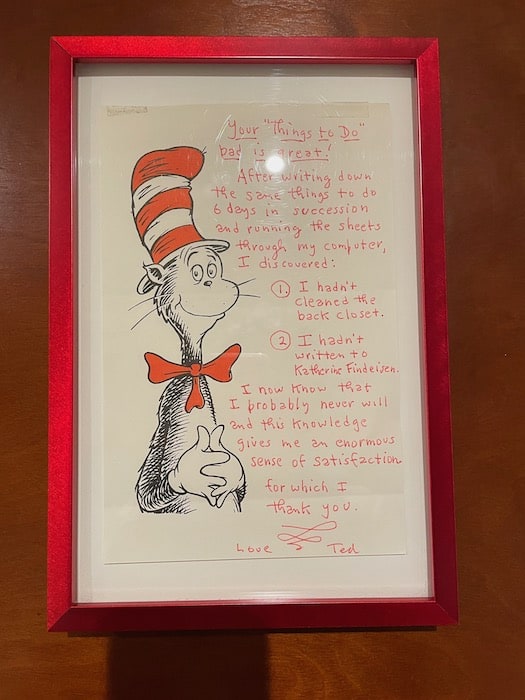 Your "Things to Do"
pad is great!
After writing down
the same things to do
6 days in succession
and running the sheets
through my computer,
I discovered:
1. I hadn't
cleaned the
back closet.
2 I hadn't
written to
Katherine Findeisen.
I now know that
I probably never will
and this knowledge
gives me an enormous
sense of satisfaction
for which I
thank you.
Love Ted